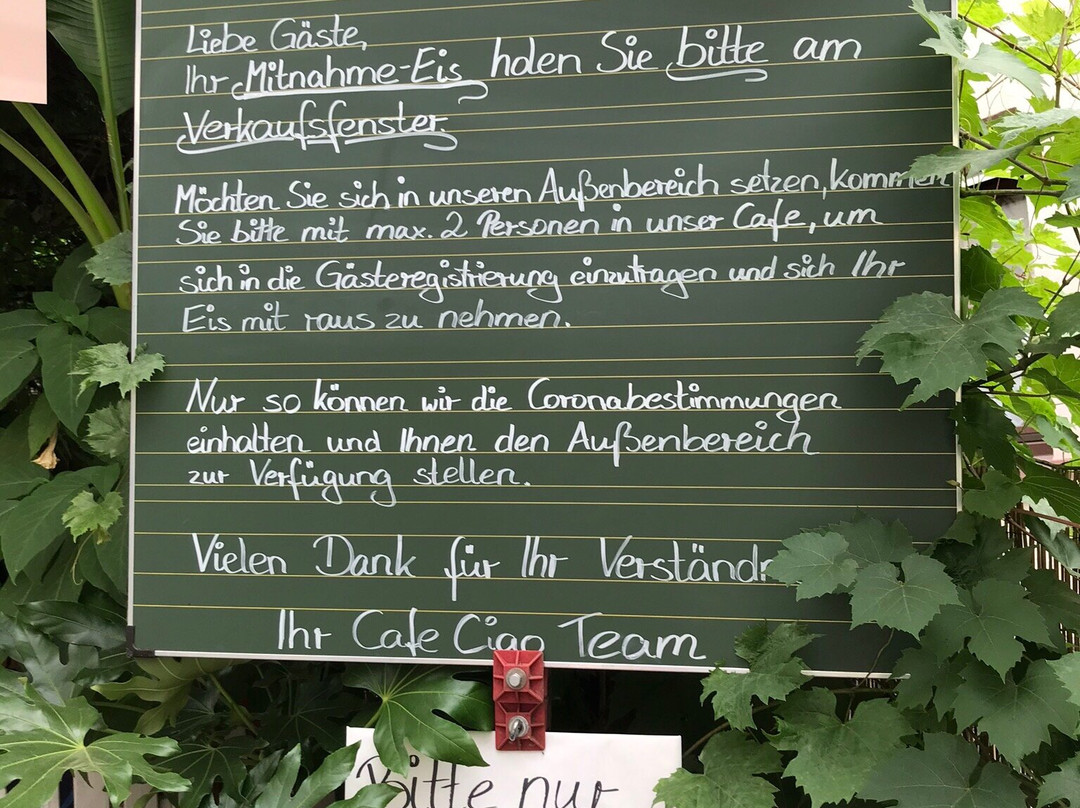 Liebe Gäste,
Ihr Mitnahme-Eis holen Sie bitte am
Verkaufsfenster.
Möchten Sie sich in unseren Außenbereich setzen, kommen
Sie bitte mit max. 2 Personen in unser Cafe, um
sich in die Gästeregistrierung einzutragen und sich Ihr
Eis mit raus zu nehmen.
Nur so können wir die Coronabestimmungen
einhalten und Ihnen den Außenbereich
zur Verfügung stellen.
Vielen Dank für Ihr
Ihr Cafe Ciao Team
Bitte nur